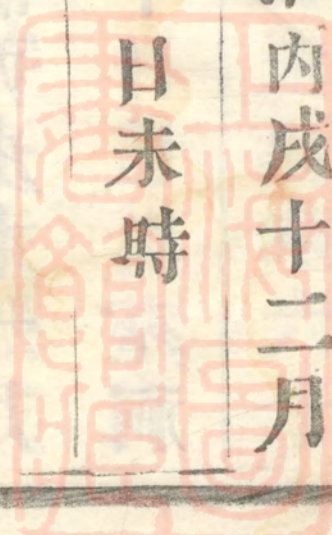 丙戌十二月
日未時